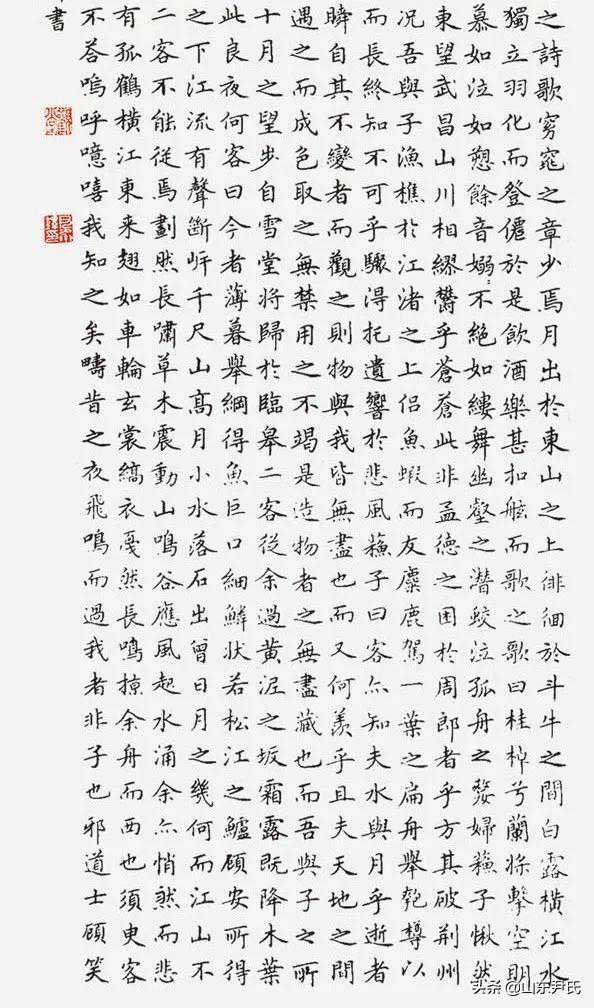 之詩歌窈窕之章少焉月出於東山之上徘徊於斗牛之間白露橫江水
獨立羽化而登僊於是飲酒樂甚扣舷而歌之歌曰桂棹兮蘭槳擊空明
慕如泣如愬餘音嫋〻不絕如縷舞幽壑之潛蛟泣孤舟之嫠婦蘇子愀然
東望武昌山川相繆鬱乎蒼蒼此非孟德之困於周郎者乎方其破荊州
况吾與子漁樵於江渚之上侶魚蝦而友麋鹿駕一葉之扁舟舉匏樽以
而長終知不可乎驟得托遺響於悲風蘇子曰客亦知夫水與月乎逝者
瞬自其不變者而觀之則物與我皆無盡也而又何羨乎且夫天地之間
遇之而成色取之無禁用之不竭是造物者之無盡藏也而吾與子之所
十月之望步自雪堂將歸於臨皋二客從余過黃泥之坂霜露既降木葉
此良夜何客曰今者薄暮舉網得魚巨口細鱗狀若松江之鱸顧安所得
之下江流有聲斷岸千尺山高月小水落石出曾日月之幾何而江山不
二客不能從焉劃然長嘯草木震動山鳴谷應風起水涌余亦悄然而悲
有孤鶴橫江東来翅如車輪玄裳縞衣戛然長鳴掠余舟而西也須臾客
不荅嗚呼噫嘻我知之矣疇昔之夜飛鳴而過我者非子也邪道士顧笑
書
头条 @山东尹氏